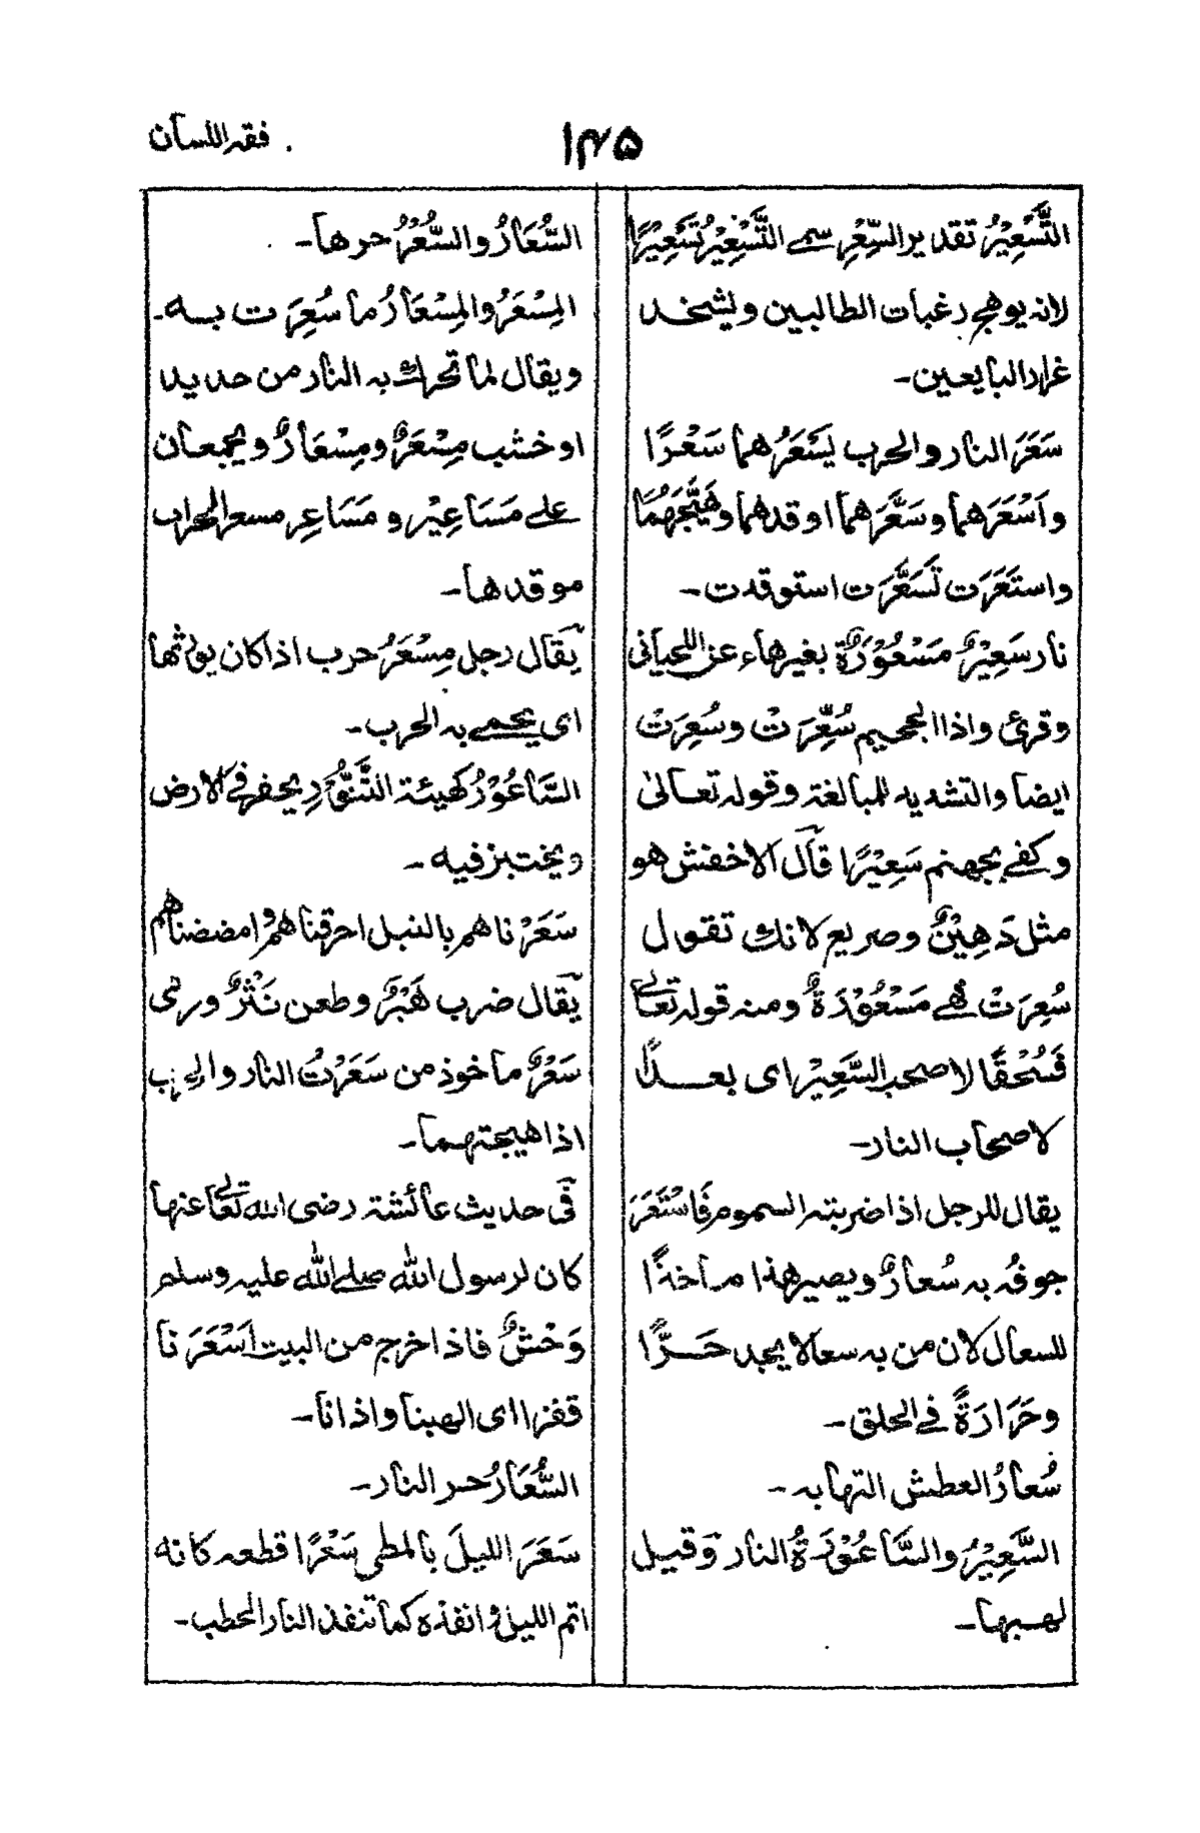 ۱۴۵
فقہ اللسان
التَّسْعِيْرُ تقدير السِّعْرِ سمے التَّسْعِيْرُ تَسْعِيْرًا
لانہ يوهج رغبات الطالبين ويشحذ
غرار البايعين۔
سَعَرَ النار والحرب يَسْعَرُهما سَعْرًا
واَسْعَرَهما وسَعَّرَهما اوقدهما وهَيَّجَهُمَا
واستَعَرَت تَسَعَّرَت استوقدت۔
نار سَعِيْرٌ مَسْعُوْرَةٌ بغيرهاء عن اللحيانی
وقرئ واذا الجحيم سُعِّرَتْ وسُعِرَتْ
ايضا والتشديد للمبالغۃ وقولہ تعالیٰ
وكفے بجهنم سَعِيْرًا قال الاخفش هو
مثل دَهِيْنٌ وصريع لانك تقول
سُعِرَتْ فهے مَسْعُوْرَةٌ ومنہ قولہ تعالے
فَسُحْقًا لاصحب السَّعِيْر ای بعدًا
لاصحاب النار۔
يقال للرجل اذا ضربتہ السموم فَاسْتَعَرَ
جوفُہ بہ سُعارٌ ويصير هذا مأخذًا
للسعال لان من بہ سعالا يجد حَرًّا
وحَرَارَةً فے الحلق۔
سُعارُ العطش التهابہ۔
السَّعِيْرُ والسَّاعُوْرَةُ النار وقيل
لهبها۔
السُّعَارُ والسُّعْرُ حرها۔
المِسْعَرُ والمِسْعَارُ ما سُعِرَت بہ۔
ويقال لما تحرك بہ النار من حديد
او خشب مِسْعَرٌ ومِسْعَارٌ ويجمعان
علے مَسَاعِيْر و مَسَاعِر مسعر الحراب
موقدها۔
يقال رجل مِسْعَرُ حرب اذا كان يؤرثها
ای يحمے بہ الحرب۔
السَّاعُوْرُ كهيئۃ التَّنُّوْرِ يحفر فے الارض
ويختبز فيہ۔
سَعَرْناهم بالنبل احرقناهم وامضضناهم
يقال ضرب هَبْرٌ وطعن نَثْرٌ ورمی
سَعْرٌ ماخوذ من سَعَرْتُ النار والحرب
اذا هيجتهما۔
فی حديث عائشۃ رضی اللہ تعالے عنها
كان لرسول اللہ صلے اللہ عليہ وسلم
وَحْشٌ فاذا خرج من البيت اَسْعَرَنا
قفزا ای الهبنا واذانا۔
السُّعَارُ حر النار۔
سَعَرَ الليلَ بالمطی سَعْرًا قطعہ كانہ
اتم الليل وانفذه كما تنفذ النار الحطب۔